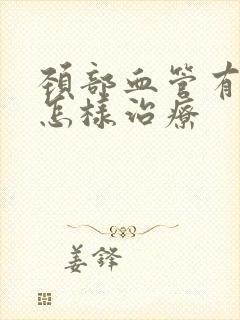 頚部血管有
怎樣治療
姜鋒